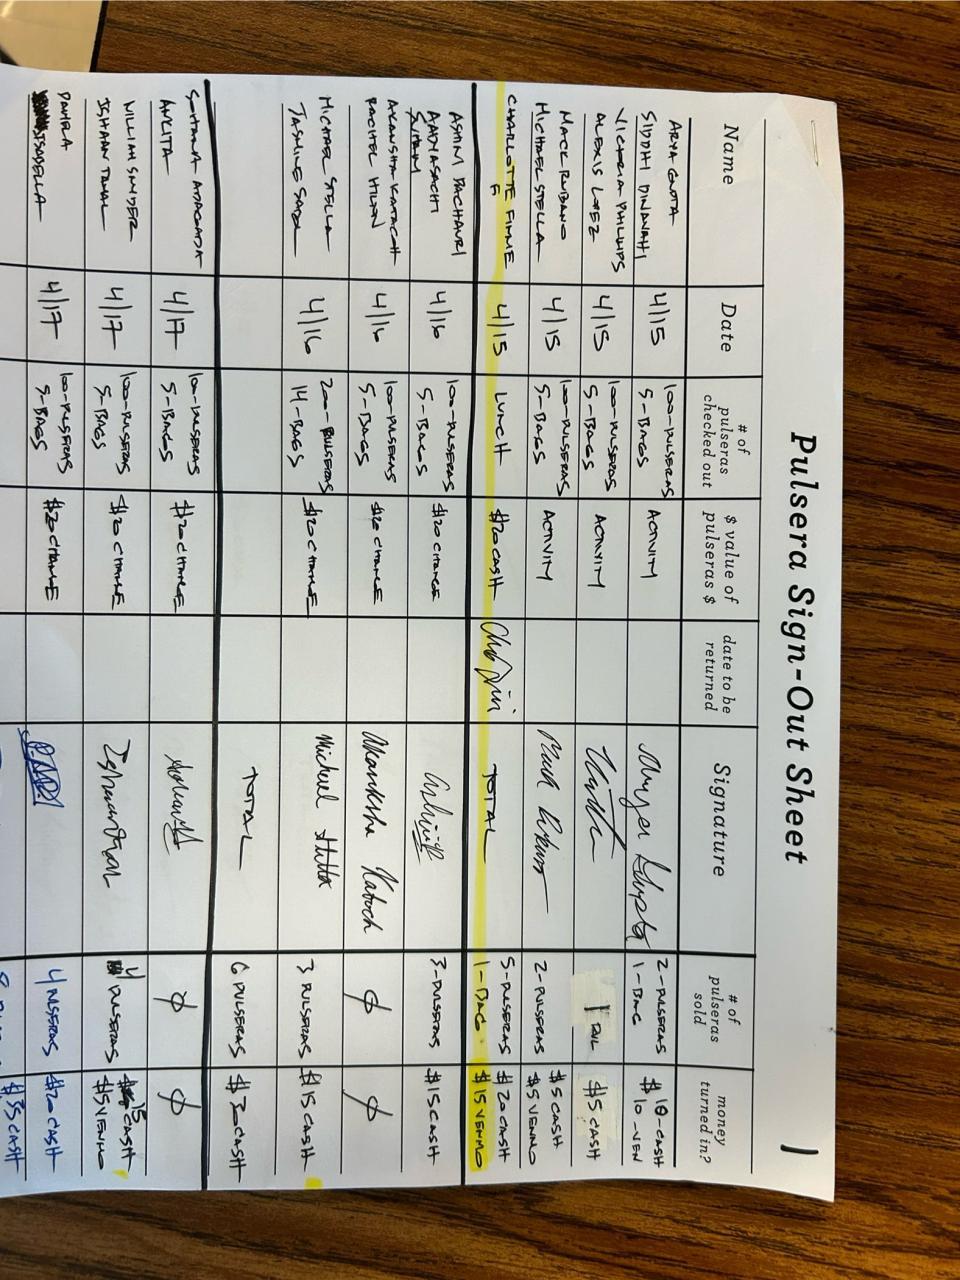 Pulsera Sign-Out Sheet
1
Name
Date
# of
pulseras
checked out
$ value of
pulseras $
date to be
returned
Signature
# of
pulseras
sold
money
turned in?
ARYA GUPTA
SIDDHI DINAVAHI
4/15
100-PULSERAS
5-BAGS
ACTIVITY
2-PULSERAS
1-BAG
$ 10-CASH
$ 10-VEN
VICTORIA PHILLIPS
ALEXIS LOPEZ
4/15
100-PULSERAS
5-BAGS
ACTIVITY
1 PUL
$5 CASH
MACK RUBANO
MICHAEL STELLA
4/15
100-PULSERAS
5-BAGS
ACTIVITY
2-PULSERAS
$5 CASH
$5 VENMO
CHARLOTTE
4/15
LUNCH
$20 CASH
TOTAL
5-PULSERAS
1-BAG
$20 CASH
$15 VENMO
ASHIM PACHAURI
4/16
100-PULSERAS
5-BAGS
$20 CHANGE
3-PULSERAS
$15 CASH
AKANSHA KATOCH
RACHEL
4/16
100-PULSERAS
5-BAGS
$20 CHANGE
Akanksha Katoch
∅
∅
MICHAEL STELLA
JASMINE
4/16
200-PULSERAS
14-BAGS
$20 CHANGE
Michael Stella
3 PULSERAS
$15 CASH
TOTAL
6 PULSERAS
$30 CASH
4/17
100-PULSERAS
5-BAGS
$20 CHANGE
∅
∅
WILLIAM SNYDER
ISHAAN
4/17
100-PULSERAS
5-BAGS
$20 CHANGE
4 PULSERAS
$15 CASH
$5 VENMO
ISABELLA
4/17
100-PULSERAS
5-BAGS
$20 CHANGE
4 PULSERAS
$20 CASH
$35 CASH